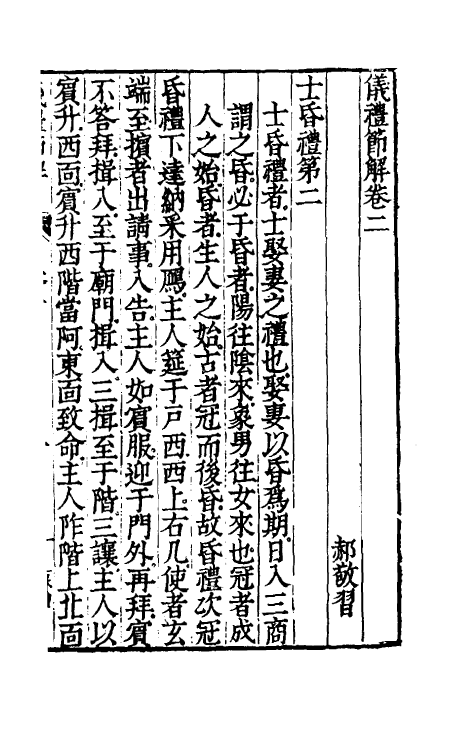 儀禮節解卷二
郝敬習
士昏禮第二
士昏禮者士娶妻之禮也娶妻以昏爲期日入三商
謂之昏必于昏者陽往陰來象男往女來也冠者成
人之始昏者生人之始古者冠而後昏故昏禮次冠
昏禮下達納采用鴈主人筵于戶西西上右几使者玄
端至擯者出請事入告主人如賓服迎于門外再拜賓
不答拜揖入至于廟門揖入三揖至于階三讓主人以
賓升西面賓升西階當阿東面致命主人阼階上北面